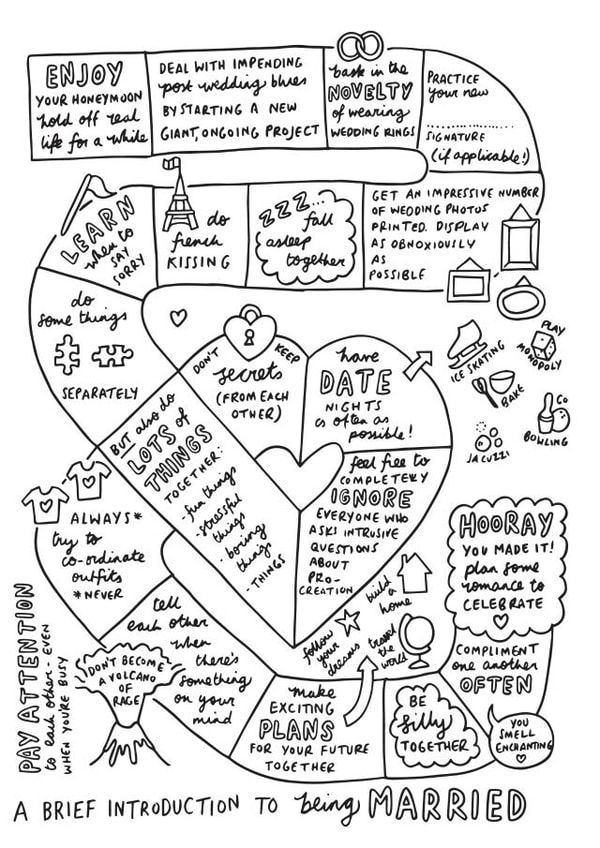 ENJOY
YOUR HONEYMOON
hold off real
life for a while
DEAL WITH IMPENDING
post wedding blues
BY STARTING A NEW
GIANT, ONGOING PROJECT
bask in the
NOVELTY
of wearing
WEDDING RINGS
PRACTICE
your new
..................
SIGNATURE
(if applicable!)
GET AN IMPRESSIVE NUMBER
OF WEDDING PHOTOS
PRINTED. DISPLAY
AS OBNOXIOUSLY
AS
POSSIBLE
ZZZ...
fall
asleep
together
do
french
KISSING
LEARN
when to
SAY
SORRY
do
some things
SEPARATELY
BUT also do
LOTS of
THINGS
TOGETHER:
- fun things
- stressful
things
- boring
things
- THINGS
DON'T KEEP
secrets
(FROM EACH
OTHER)
have
DATE
NIGHTS
as often as
possible!
ICE SKATING
PLAY
MONOPOLY
BAKE
GO
BOWLING
JACUZZI
feel free to
COMPLETELY
IGNORE
EVERYONE WHO
ASKS INTRUSIVE
QUESTIONS
ABOUT
PRO-
CREATION
ALWAYS*
try to
co-ordinate
outfits
*NEVER
tell
each other
when
there's
something
on your
mind
DON'T BECOME
A VOLCANO
OF
RAGE
PAY ATTENTION
to each other - EVEN
WHEN YOU'RE BUSY
make
EXCITING
PLANS
FOR YOUR FUTURE
TOGETHER
follow
your
dreams
travel
the
world
build
a
home
BE
silly
TOGETHER
COMPLIMENT
one another
OFTEN
YOU
SMELL
ENCHANTING
HOORAY
YOU MADE IT!
plan some
romance to
CELEBRATE
A BRIEF INTRODUCTION TO being MARRIED